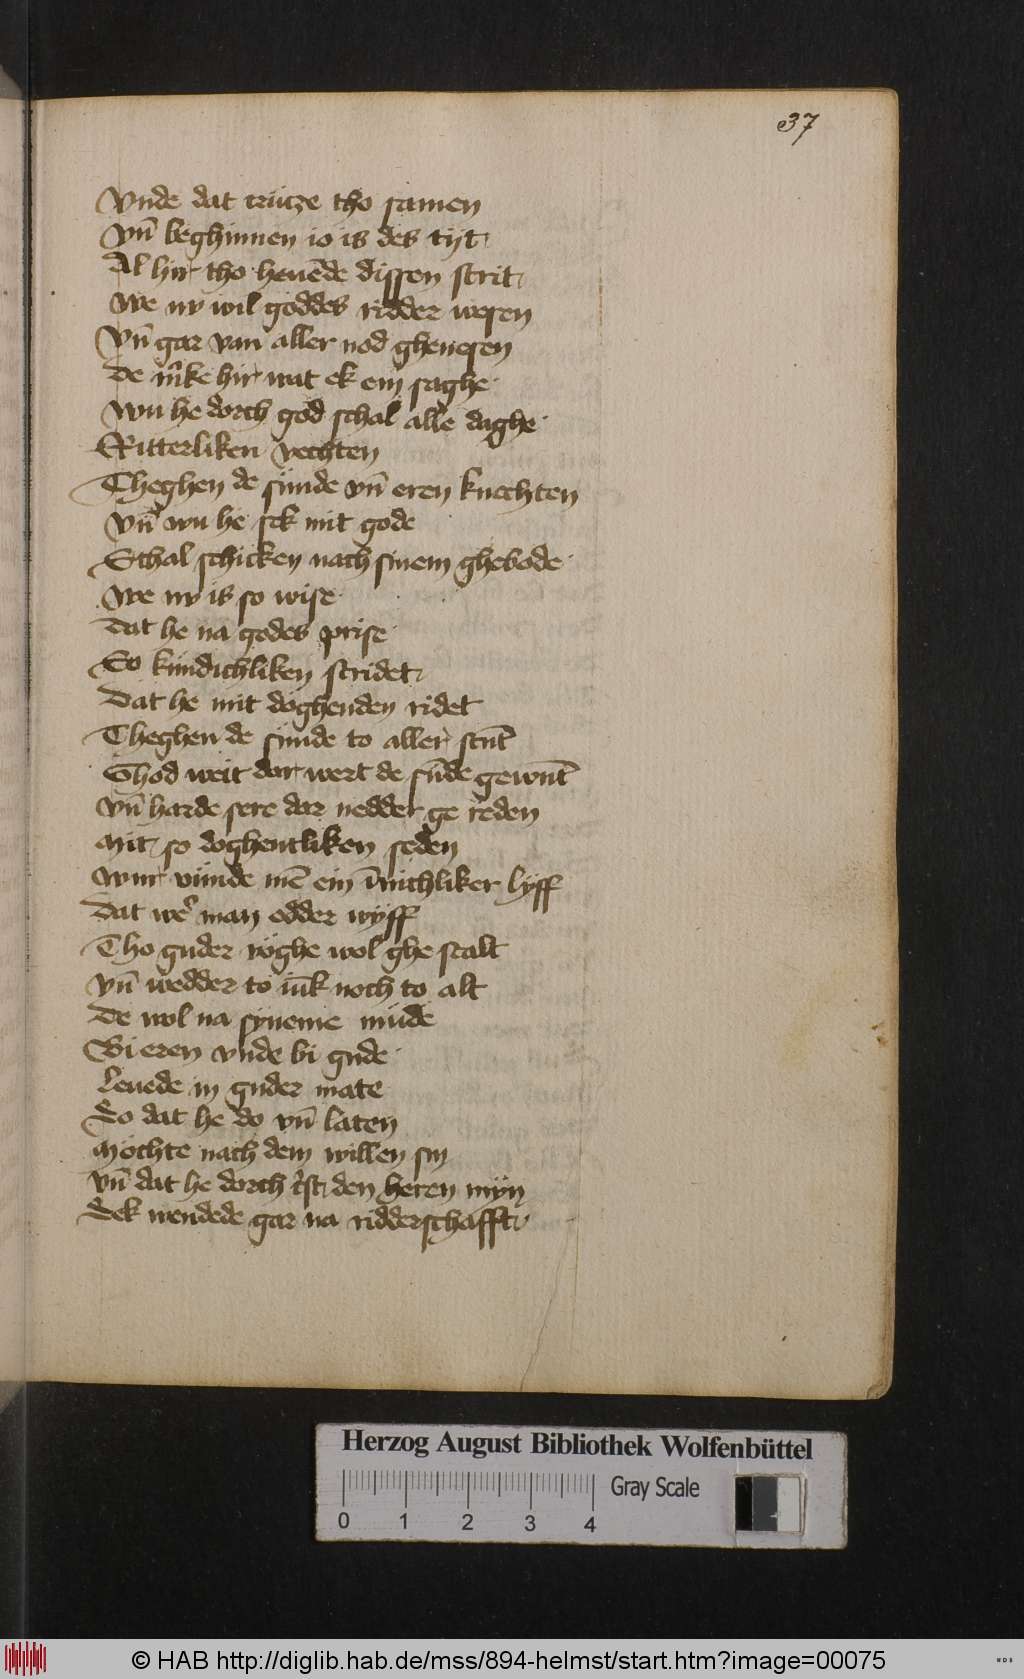 37
Vnde dat crütze tho samen
Vn̄ beghinnen io is des tijt
Al hir tho heuēde dissen strit
We nv wil goddes ridder wesen
Vn̄ gar van aller nod ghenesen
De m̄ke hir wat ek em saghe
Wu he dorch god schal alle daghe
Ritterliken vechten
Theghen de sünde vn̄ eren knechten
Vn̄ wu he sek mit gode
Schal schicken nach sinem ghebode
We nv is so wise
Dat he na godes prise
So kündichliken stridet
Dat he mit döghenden ridet
Theghen de sünde to aller stūt
Ghod weit dar wert de sūde gewūt
Vn̄ harde sere dar nedder ge reden
Mit so doghentliken seden
Wur vünde mē ein īnichliker lyff
Dat we᷒ man odder wyff
Tho guder vöghe wol ghe stalt
Vn̄ wedder to iūk noch to alt
De wol na syneme müde
Bi eren vnde bi gude
Leuede in guder mate
So dat he do vn̄ laten
Möchte nach dem willen sin
Vn̄ dat he dorch c᷒st den heren myn
Sek wendede gar na ridderschafft
Herzog August Bibliothek Wolfenbüttel
0 1 2 3 4
Gray Scale
© HAB http://diglib.hab.de/mss/894-helmst/start.htm?image=00075